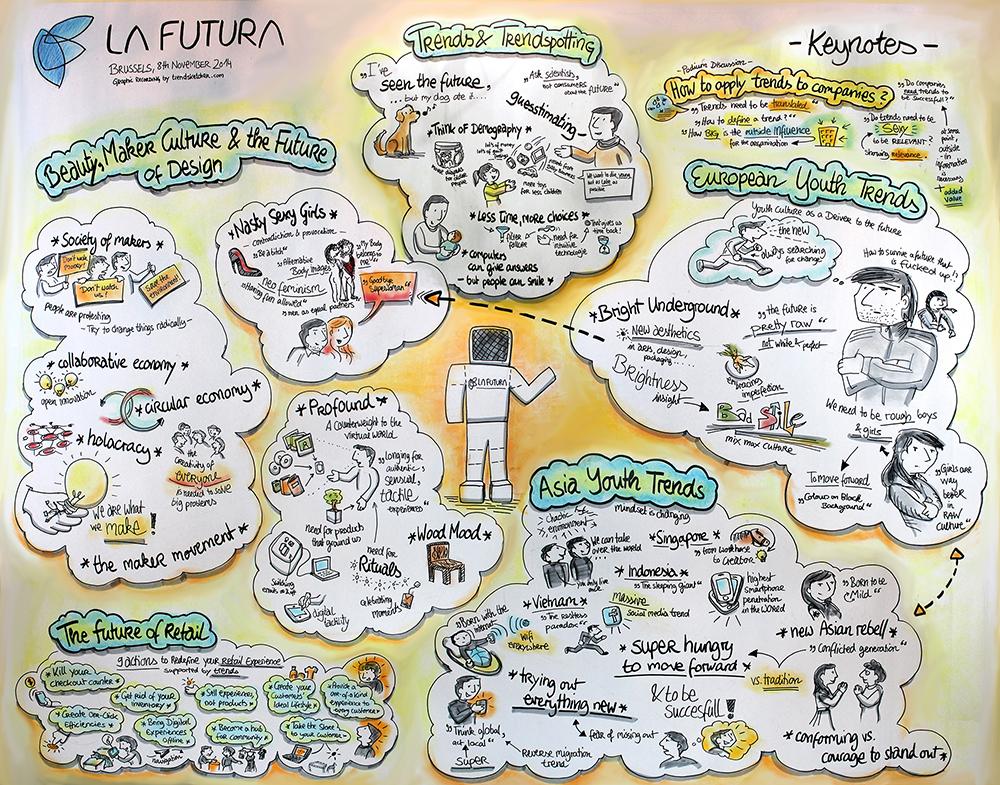 LA FUTURA
BRUSSELS, 8TH NOVEMBER 2014
GRAPHIC RECORDING by trendsketcher.com
Trends & Trendspotting
"I've
seen the future,
... but my dog ate it....
"Ask scientists,
not consumers
about the future"
guesstimating
*Think of Demography*
lots of money
lots of goods
more toys
for less children
"We want to die young,
but as late as
possible
*Less Time, more choices*
filter
failure
need for
intuitive
technologie
That gives us
time back!
*computers
can give answers
- but people can smile*
- Keynotes -
- Podium Discussion -
How to apply trends to companies?
"Trends need to be translated"
"How to define a trend?"
"How BIG is the outside influence
for the organisation
"Do companies
need trends to
be successful?"
"Do trends need to be
sexy
to be RELEVANT?
showing relevance
at some
point,
outside
information
is
necessary
+ added
value
Beauty, Maker Culture & the Future
of Design
*Society of makers*
Don't waste
money!
Don't watch
us!
Save the
environment!
people are protesting
- Try to change things radically -
*collaborative economy*
open innovation
*circular economy*
*holocracy*
the
creativity of
everyone
is needed to solve
big problems
we are what
we make!
*the maker movement*
*Nasty Sexy Girls*
contradiction & provocation
"Be a bitch"
"Alternative
Body Images"
"My Body
belongs to
me"
Neo feminism
"Having fun allowed"
"men as equal partners
Goodbye
Superwoman
LA FUTURA
*Profound*
A counterweight to the
virtual world
"longing for
authentic,
sensual,
tactile
experiences"
need for product
that ground us
need for
Rituals
celebrating
moments
digital
tactility
*Wood Mood*
European Youth Trends
Youth Culture as a Driver to the future
the new
always searching
for change
How to survive a future that
is fucked up?
*Bright Underground*
New aesthetics
in arts, design,
packaging....
Brightness
insight
"the future is
pretty raw"
not white & perfect
embracing
imperfection
Bad Stile
mix max culture
We need to be rough, boys
& girls
To move forward
"Colour on Block
Background"
"Girls are
way
better
in
RAW
culture"
Asia Youth Trends
mindset is changing
Chaotic
environment
"We can take
over the world
you only live
once
*Singapore*
"from workhorse
to creator"
*Indonesia*
"The sleeping giant"
massive
social media trend
highest
smartphone
penetration
in the WORLD
*Vietnam*
"The restless
paradox"
"Born with the
internet"
Wifi
everywhere
"Born to be
Mild"
*new Asian rebell*
"Conflicted generation"
*super hungry
to move forward*
& to be
succesfull!
vs. tradition
*trying out
everything new*
"Think global,
act local"
super
fear of missing out
Reverse migration
trend
*conforming vs.
courage to stand out*
The Future of Retail
9 actions to Redefine your Retail Experience
supported by trends
*Kill your
checkout counter*
*Get rid of your
inventory*
*Sell experiences
not products*
*Create your
customers'
Ideal Lifestyle*
*Provide a
one-of-a-kind
experience to
every customer*
*Create One-Click
Efficiencies*
*Being Digital
Experiences
Offline*
*Become a hub
for community*
*Take the Store
to your customer*
navigation